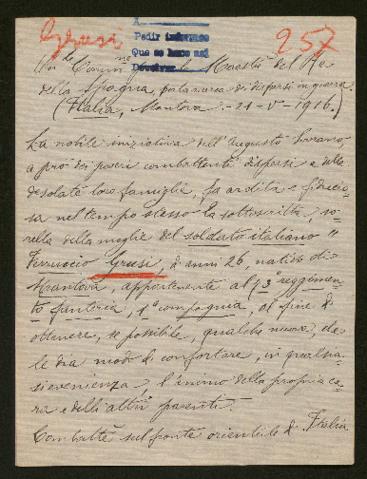 Grusi
A
Pedir informes
Que se hace así
Devolver
257
della Spagna, per la ricerca dei dispersi in guerra.
(Italia, Mantova - 21-V-1916.)
La nobile iniziativa dell'Augusto Sovrano,
a prò dei poveri combattenti dispersi e delle
desolate loro famiglie, fa ardita e fiducio-
sa nel tempo stesso la sottoscritta, so-
rella della moglie del soldato italiano "
Ferruccio Grusi, di anni 26, nativo di
Mantova, appartenente al 73° reggimen-
to fanteria, 1ª compagnia, al fine di
ottenere, se possibile, qualche nuova, che
le dia modo di confortare, in qualsia-
si evenienza, l'animo della propria ca-
ra e degli altri parenti.
Combatté sul fronte orientale d'Italia